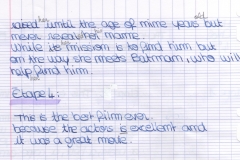 her old
raised until the age of mine years but
never reveal her name.
While its mission is to find him but
on the way she meets Batman, who will
help find him.
Etape 4:
This is the best film ever.
because the actors is excellent and
it was a great movie.